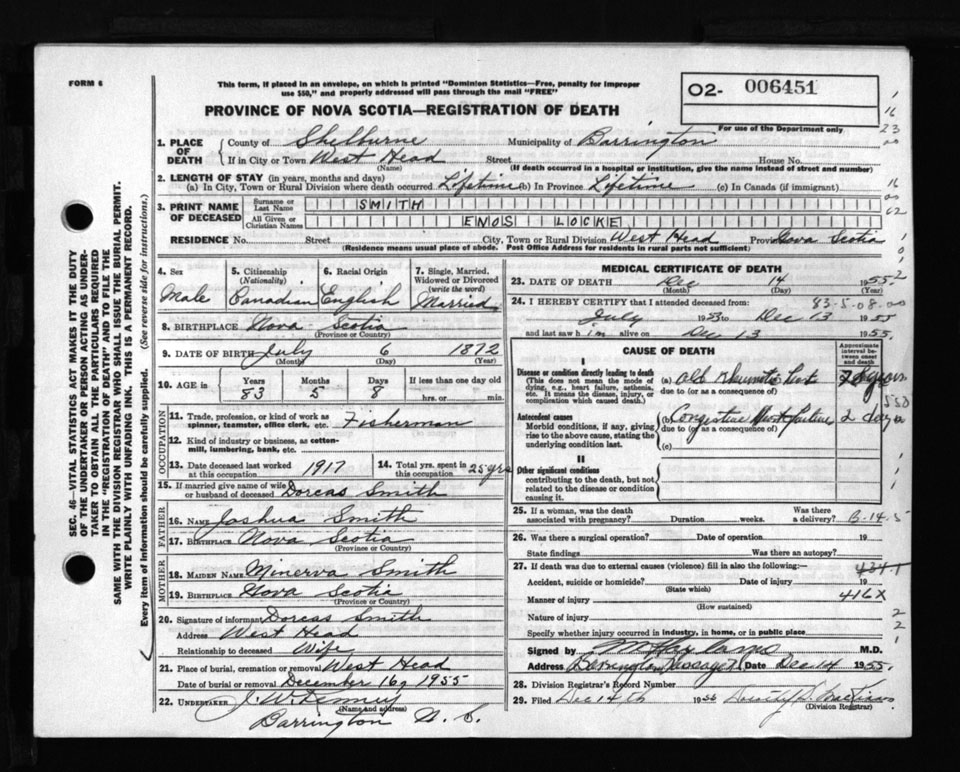 FORM 6
This form, if placed in an envelope, on which is printed "Dominion Statistics—Free, penalty for improper
use $50," and properly addressed will pass through the mail "FREE"
PROVINCE OF NOVA SCOTIA—REGISTRATION OF DEATH
O2- 006451
For use of the Department only
1. PLACE OF DEATH County of Shelburne Municipality of Barrington
If in City or Town West Head Street House No.
(Name) (If death occurred in a hospital or institution, give the name instead of street and number)
2. LENGTH OF STAY (in years, months and days)
(a) In City, Town or Rural Division where death occurred Lifetime (b) In Province Lifetime (c) In Canada (if immigrant)
3. PRINT NAME OF DECEASED Surname or Last Name SMITH
All Given or Christian Names ENOS LOCKE
RESIDENCE No. Street City, Town or Rural Division West Head Province Nova Scotia
(Residence means usual place of abode. Post Office Address for residents in rural parts not sufficient)
4. Sex 5. Citizenship (Nationality) 6. Racial Origin 7. Single, Married, Widowed or Divorced (write the word)
Male Canadian English Married
8. BIRTHPLACE Nova Scotia
(Province or Country)
9. DATE OF BIRTH July 6 1872
(Month) (Day) (Year)
10. AGE in Years Months Days If less than one day old
83 5 8 hrs. or min.
OCCUPATION
11. Trade, profession, or kind of work as spinner, teamster, office clerk, etc. Fisherman
12. Kind of industry or business, as cotton-mill, lumbering, bank, etc.
13. Date deceased last worked at this occupation 1917 14. Total yrs. spent in this occupation 25 yrs
15. If married give name of wife or husband of deceased Dorcas Smith
FATHER
16. NAME Joshua Smith
17. BIRTHPLACE Nova Scotia
(Province or Country)
MOTHER
18. MAIDEN NAME Minerva Smith
19. BIRTHPLACE Nova Scotia
(Province or Country)
20. Signature of informant Dorcas Smith
Address West Head
Relationship to deceased Wife
21. Place of burial, cremation or removal West Head
Date of burial or removal December 16, 1955
22. UNDERTAKER J. W.
(Name and address)
Barrington N. S.
MEDICAL CERTIFICATE OF DEATH
23. DATE OF DEATH Dec 14 1955
(Month) (Day) (Year)
24. I HEREBY CERTIFY that I attended deceased from: 83-5-08-00
July 1953 to Dec 13 1955
and last saw h im alive on Dec 13 1955.
CAUSE OF DEATH
Approximate interval between onset and death
I
Disease or condition directly leading to death
(This does not mean the mode of dying, e.g., heart failure, asthenia, etc. It means the disease, injury, or complication which caused death.)
(a) Old Rheumatic Heart years
due to (or as a consequence of)
Antecedent causes
Morbid conditions, if any, giving rise to the above cause, stating the underlying condition last.
(b) Congestive Heart failure 2 days
due to (or as a consequence of)
(c)
II
Other significant conditions
contributing to the death, but not related to the disease or condition causing it.
25. If a woman, was the death associated with pregnancy? Duration weeks. Was there a delivery? B-14-5
26. Was there a surgical operation? Date of operation 19
State findings Was there an autopsy?
27. If death was due to external causes (violence) fill in also the following:— 434.1
Accident, suicide or homicide? Date of injury 19
(State which)
Manner of injury 416X
(How sustained)
Nature of injury
Specify whether injury occurred in industry, in home, or in public place
Signed by M.D.
Address Barrington Passage Date Dec 14 1955.
28. Division Registrar's Record Number
29. Filed Dec 14th 19
(Division Registrar)
SEC. 46—VITAL STATISTICS ACT MAKES IT THE DUTY
OF THE UNDERTAKER OR PERSON ACTING AS UNDER-
TAKER TO OBTAIN ALL THE PARTICULARS REQUIRED
IN THE "REGISTRATION OF DEATH" AND TO FILE THE
SAME WITH THE DIVISION REGISTRAR WHO SHALL ISSUE THE BURIAL PERMIT.
WRITE PLAINLY WITH UNFADING INK. THIS IS A PERMANENT RECORD.
Every item of information should be carefully supplied. (See reverse side for instructions.)